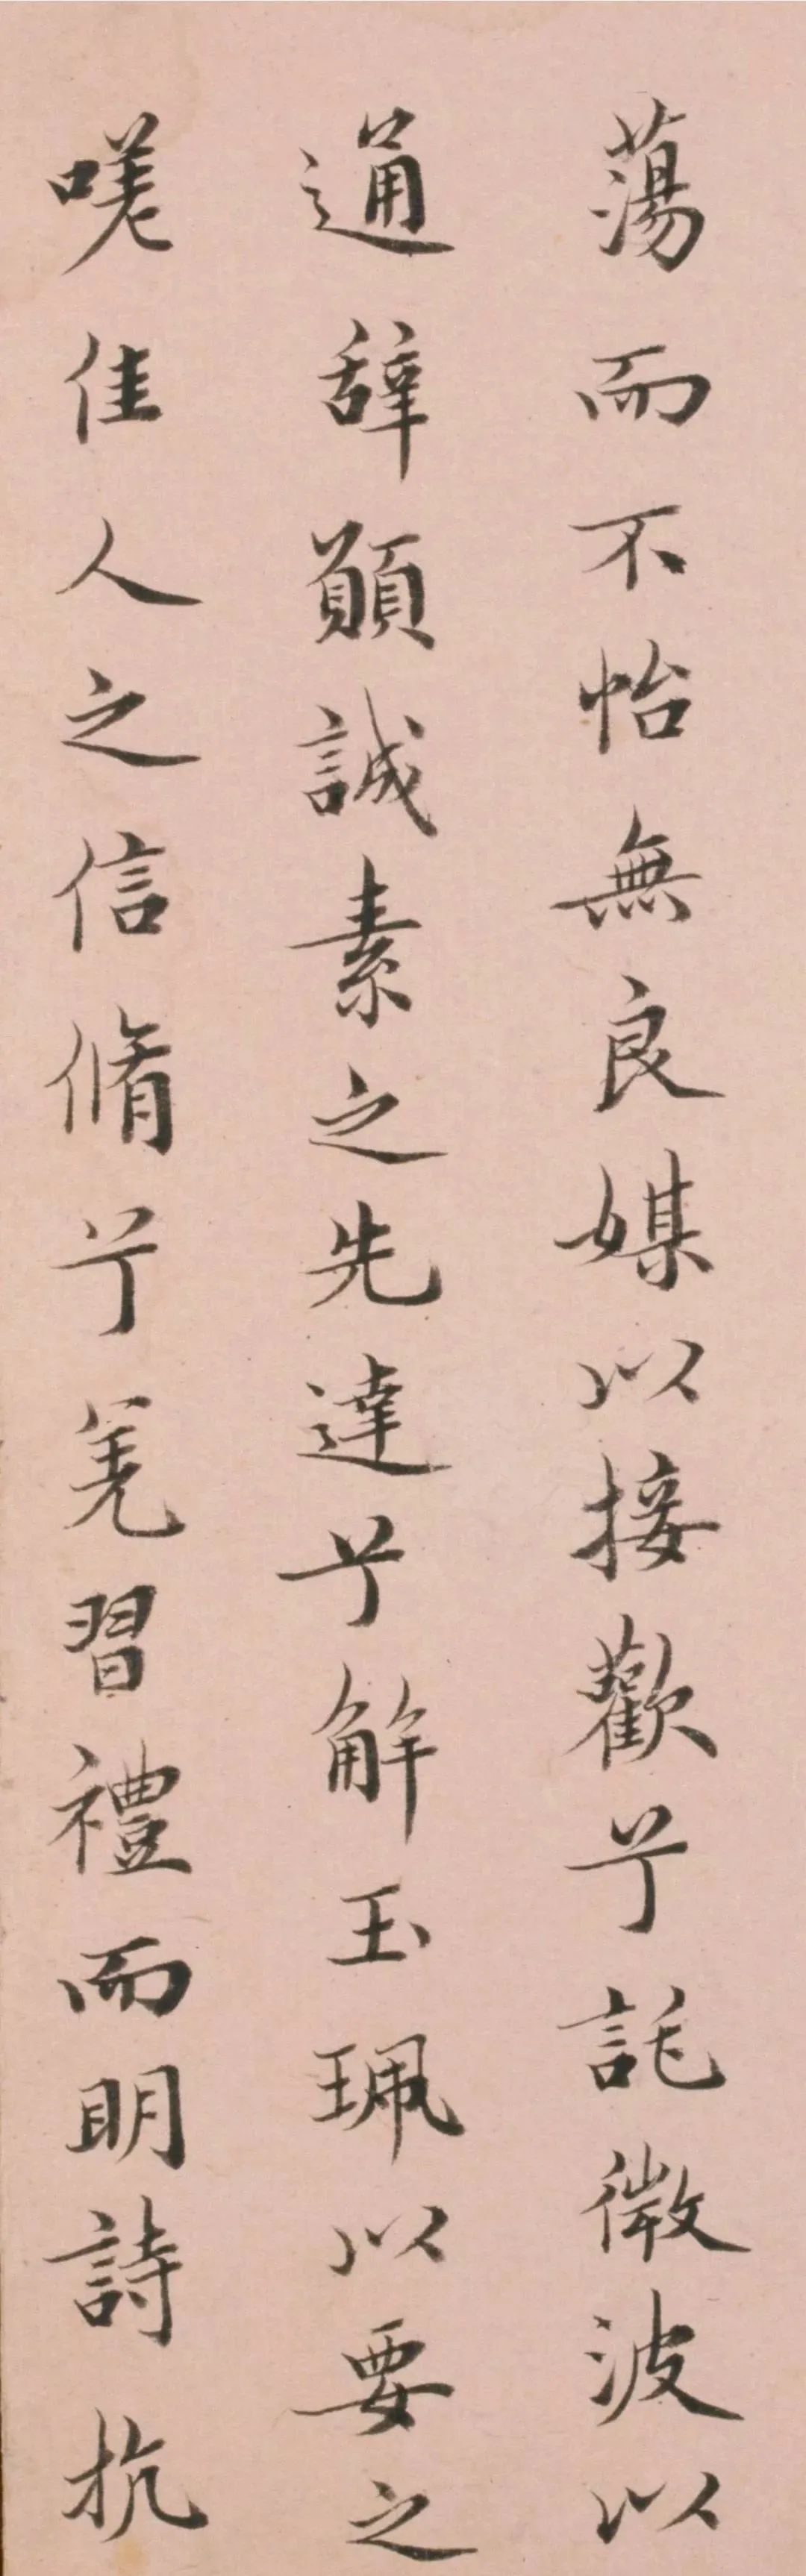 蕩而不怡無良媒以接歡兮託微波以
通辞願誠素之先達兮解玉珮以要之
嗟佳人之信脩兮羌習禮而明詩抗